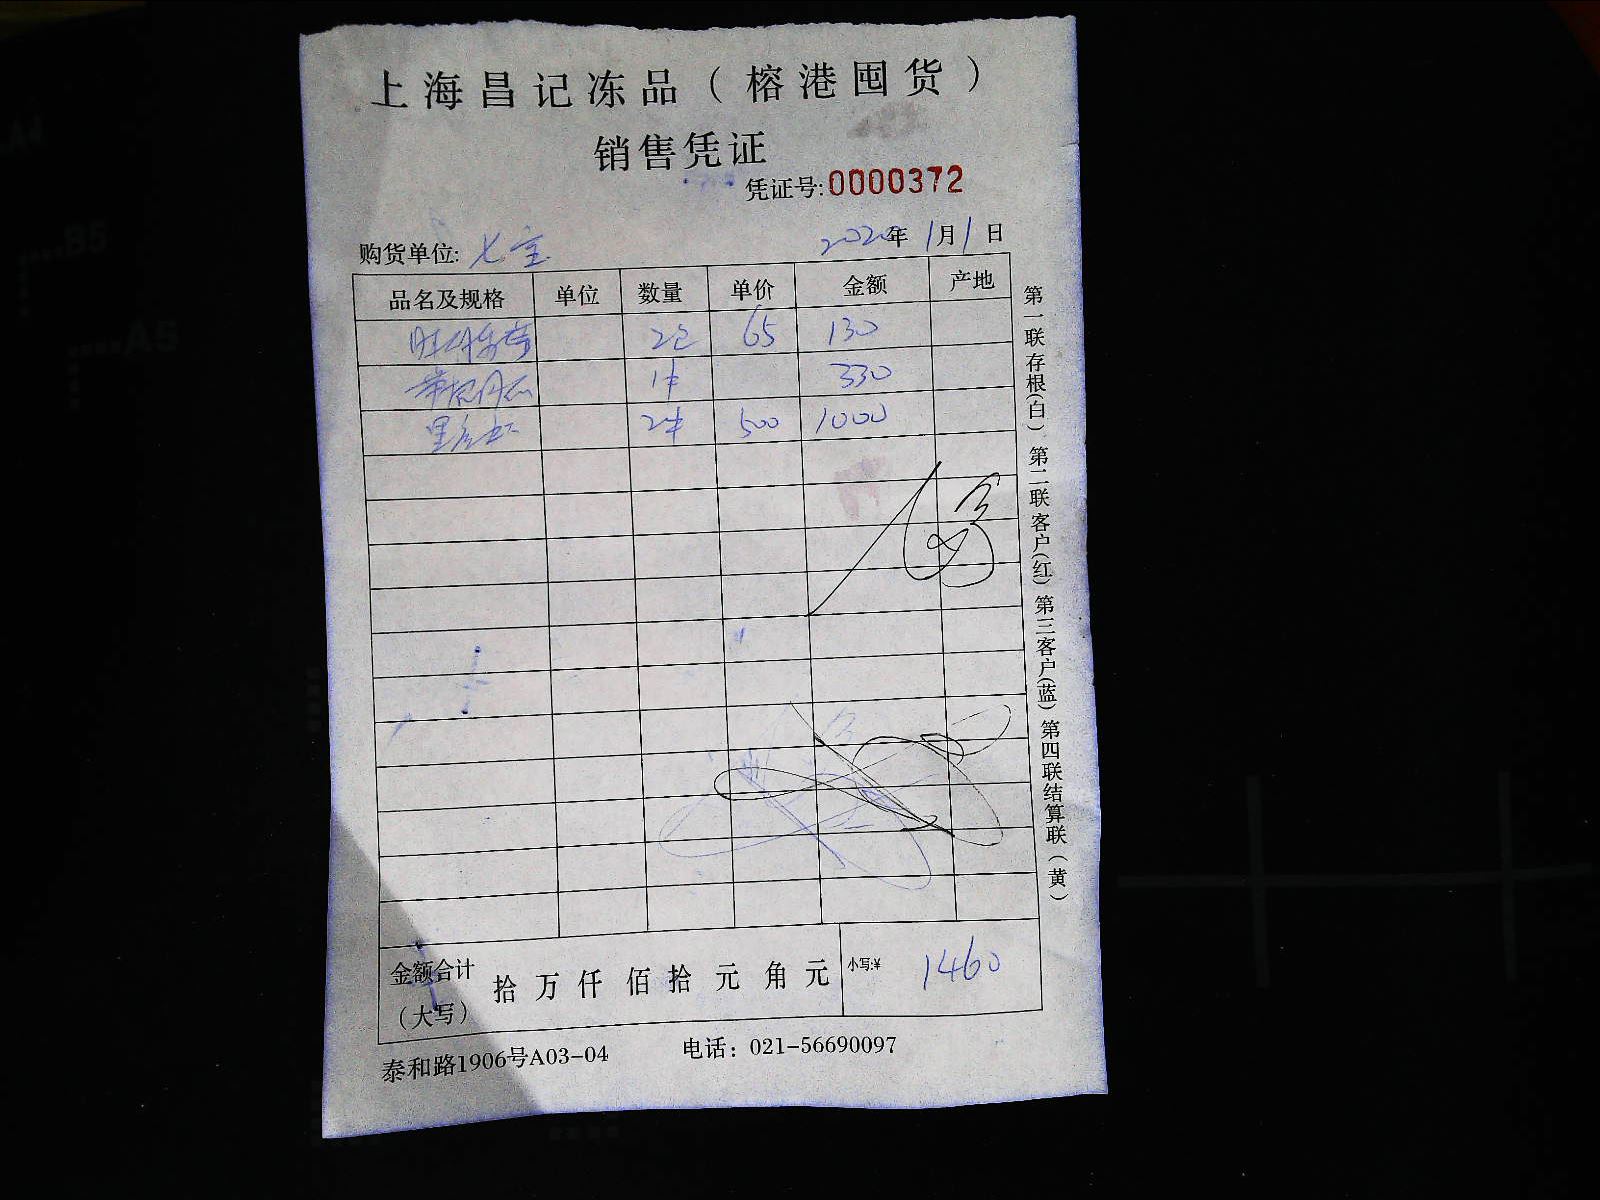 上海昌记冻品（榕港囤货）
销售凭证
凭证号:0000372
购货单位: 七宝 2020年1月1日
品名及规格 单位 数量 单价 金额 产地
2包 65 130
1件 330
黑虎虾 2件 500 1000
金额合计（大写） 拾 万 仟 佰 拾 元 角 元 小写:¥ 1460
泰和路1906号A03-04 电话：021-56690097
第一联存根(白) 第二联客户(红) 第三客户(蓝) 第四联结算联（黄）